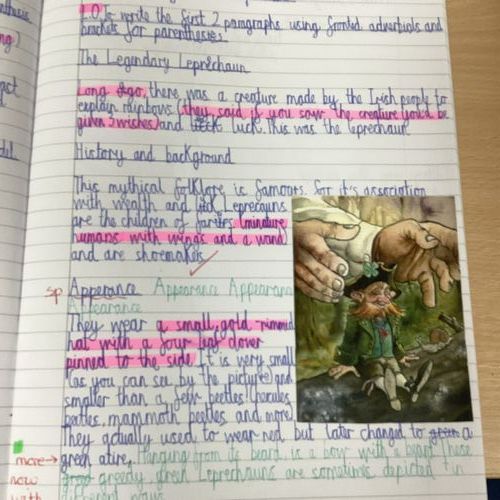 L.O. To write the first 2 paragraphs using fronted adverbials and
brackets for parentheses.
The Legendary Leprechaun
Long Ago, there was a creature made by the Irish people to
explain rainbows (they said if you saw the creature you'd be
given 3 wishes) and luck. This was the leprechaun.
History and background
This mythical folklore is famours for it's association
with wealth and luck Leprecauns
are the children of faries (minature
humans with wings and a wand
and are shoemakers
sp Apperance Appearance Appearance
Appearance
They wear a small, gold-rimmed
hat with a four leaf clover
pinned to the side. It is very small
(as you can see by the picture) and
smaller than a few beetles (hercules
beetles, mammoth beetles and more)
They actually used to wear red but later changed to green a
more → green atire. Hanging from its beard is a bow with a These
now good greedy Leprechauns are sometimes depicted in
with different ways